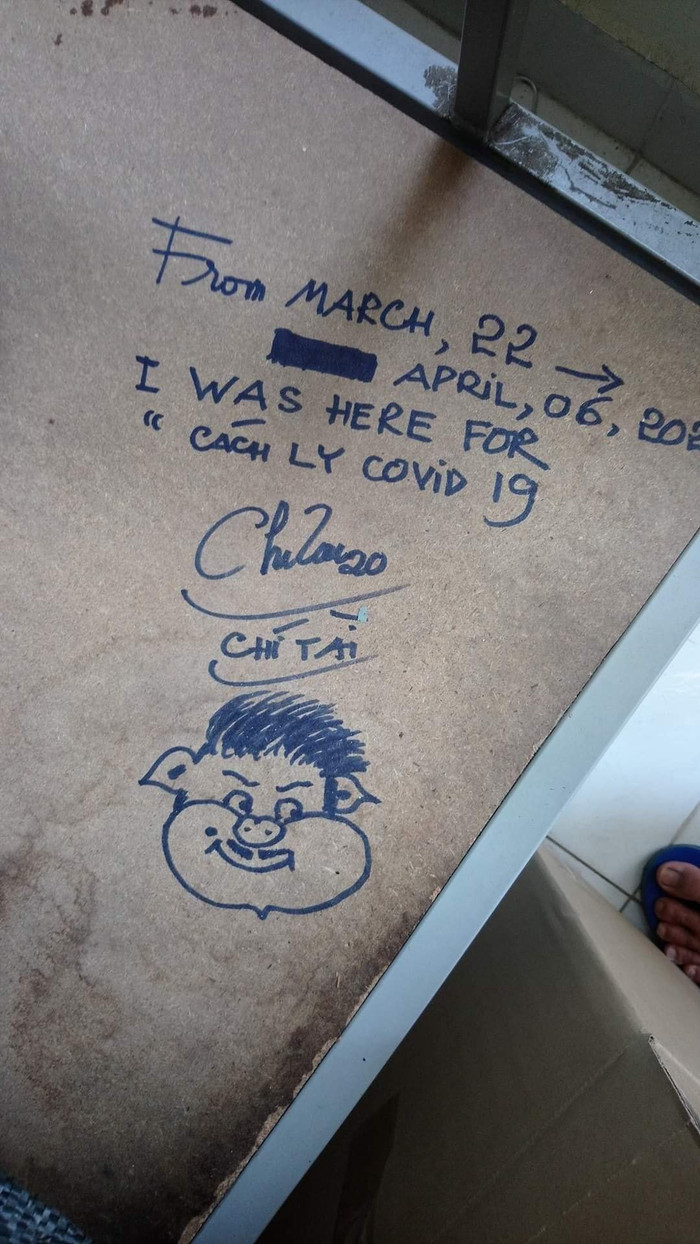 From MARCH, 22 →
APRIL, 06, 202
I WAS HERE FOR
“ CÁCH LY COVID 19
ChiTai20
CHÍ TÀI